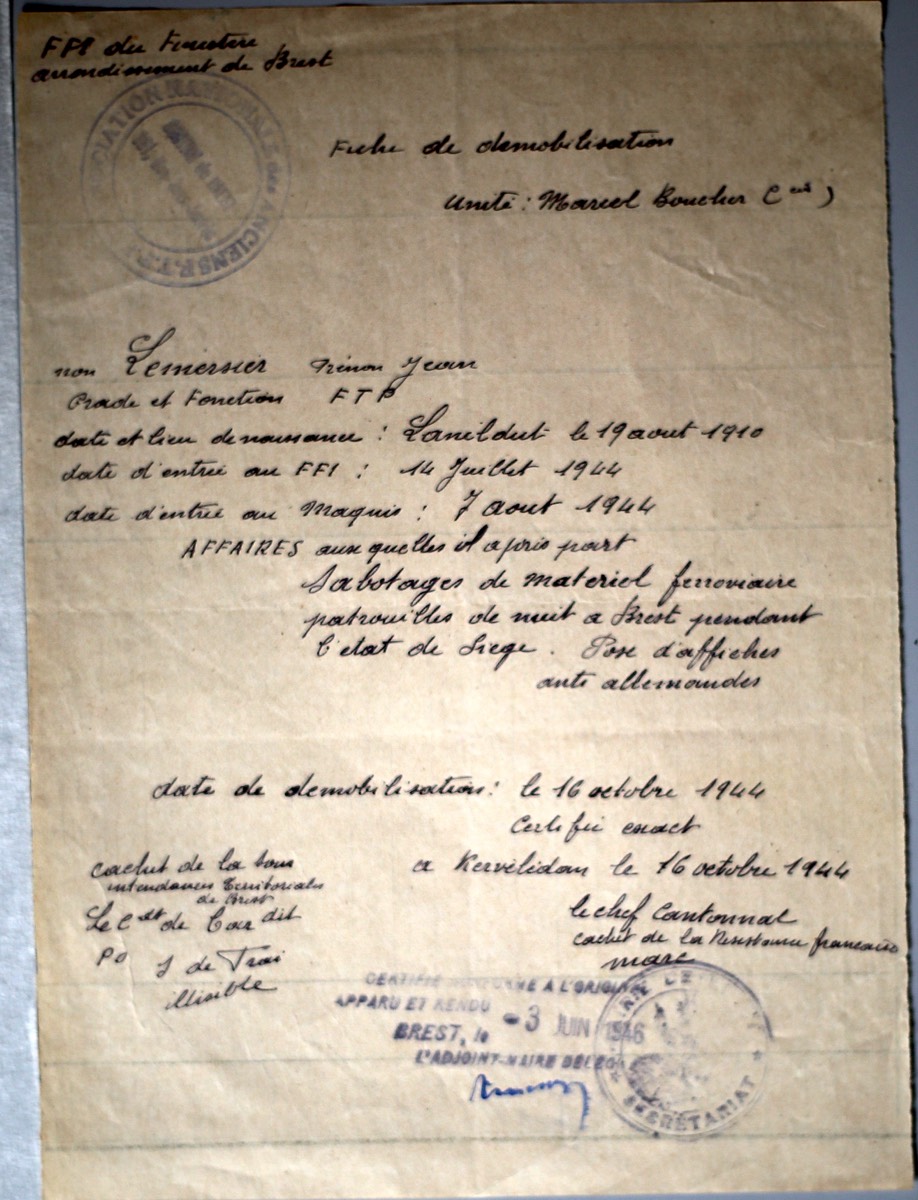 FFI du Finistère
arrondissement de Brest
Fiche de demobilisation
Unité : Marcel Boucher (Cie)
ASSOCIATION NATIONALE des ANCIENS F.T.P.
nom Lemersier Prénom Jean
Grade et Fonction F T P
date et lieu de naissance : Lanildut le 19 aout 1910
date d'entrée au FFI : 14 Juillet 1944
date d'entrée au Maquis : 7 aout 1944
AFFAIRES aux quelles il a pris part
Sabotages de materiel ferroviaire
patrouilles de nuit a Brest pendant
l'etat de Siege. Pose d'affiches
anti allemandes
date de demobilisation : le 16 octobre 1944
Certifié exact
a Kervélédan le 16 octobre 1944
cachet de la sous
intendances territoriales
de Brest
Le Cdt de
PO J de Trai
illisible
le chef Cantonnal
cachet de la Resistance francaise
marc
CERTIFIÉ CONFORME A L'ORIGINAL
APPARU ET RENDU
BREST, le -3 JUIN 1946
L'ADJOINT-MAIRE DELEGUE
SECRÉTARIAT